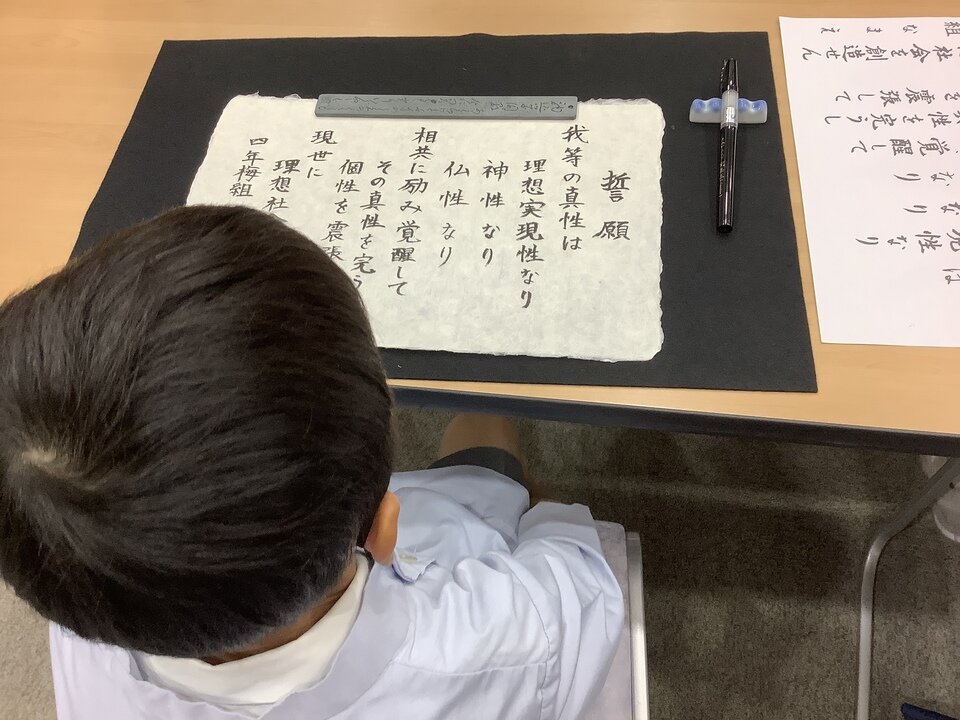 誓願
我等の真性は
理想実現性なり
神性なり
仏性なり
相共に励み覚醒して
その真性を完う
個性を震張
現世に
理想社
四年梅組
は
現性なり
なり
なり
覚醒して
性を完うし
を震張して
社会を創造せん
組 なまえ